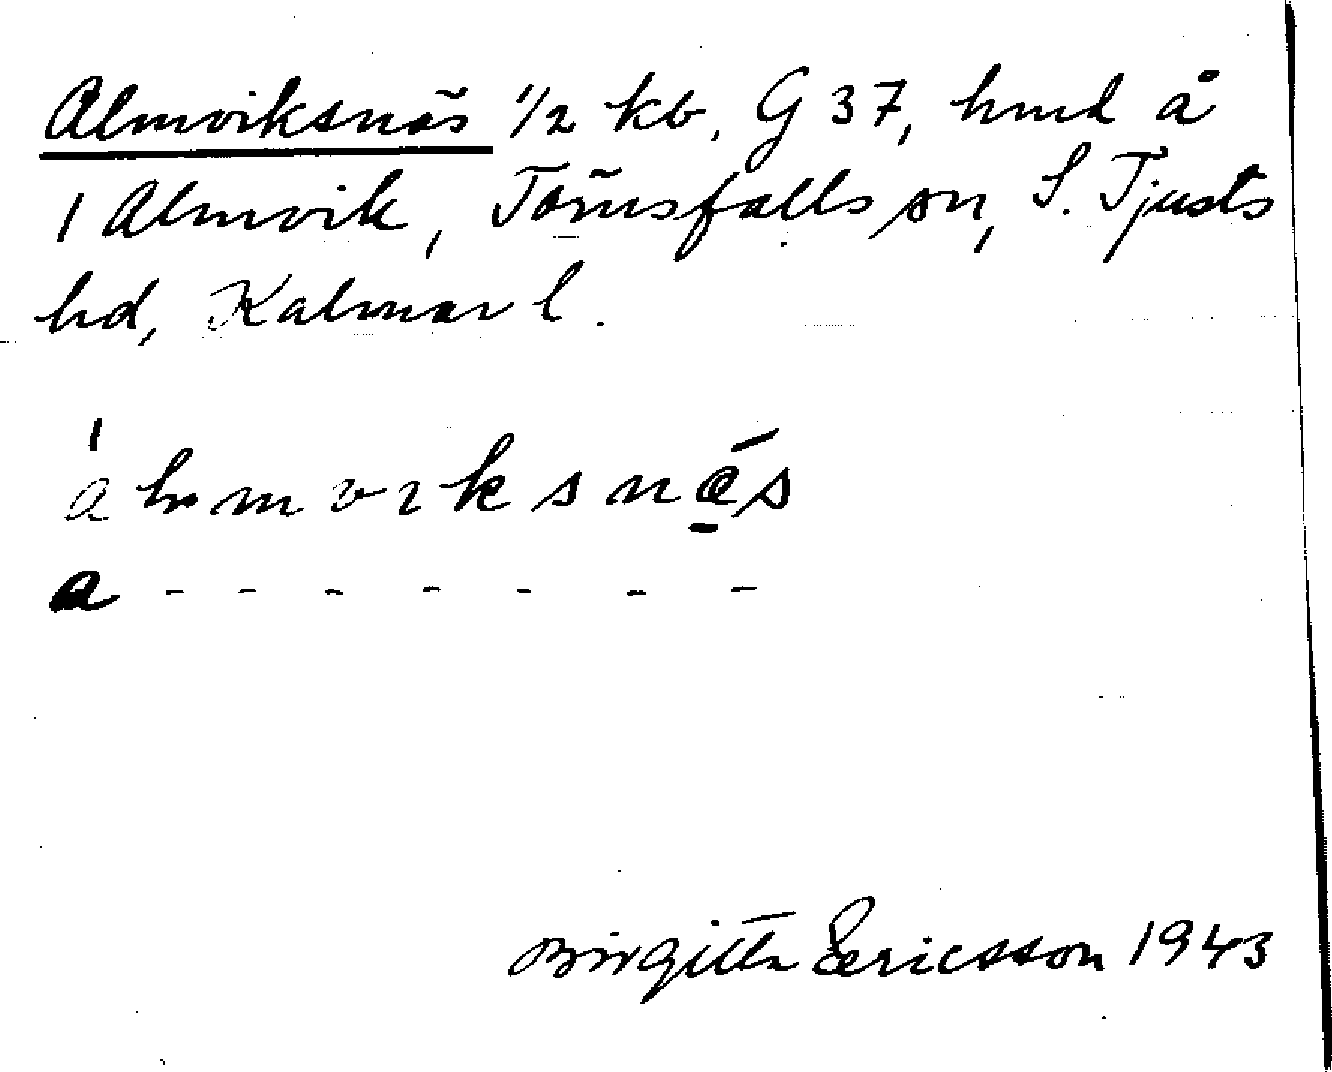 Almviksnäs 1/2 kb, G 37, hmd å
1 Almvik, Törnsfalls sn, S. Tjusts
hd, Kalmar l.
a - - - - - - -
Birgitta Ericsson 1943